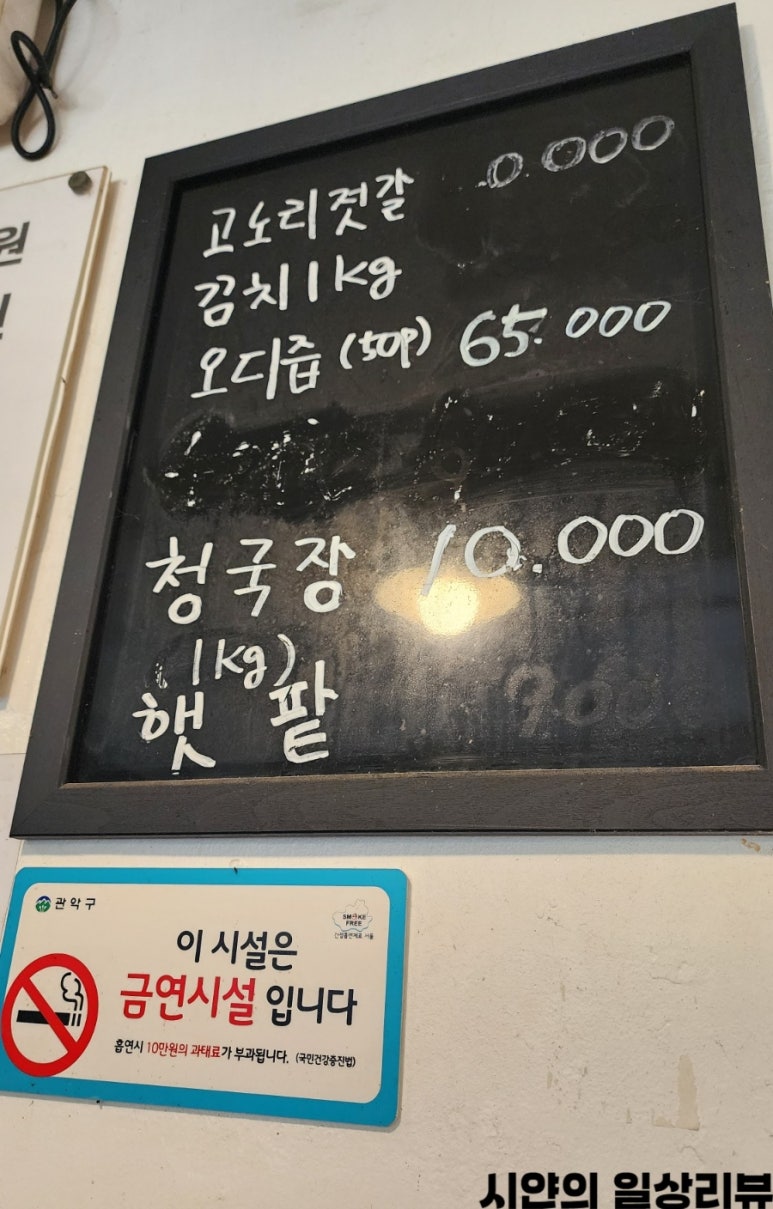 원
고노리젓갈 0.000
김치 1kg
오디즙 (50p) 65.000
청국장 10.000
(1kg)
햇 팥
관악구
SMOKE FREE
이 시설은
금연시설 입니다
흡연시 10만원의 과태료가 부과됩니다. (국민건강증진법)
시얀의 일상리뷰